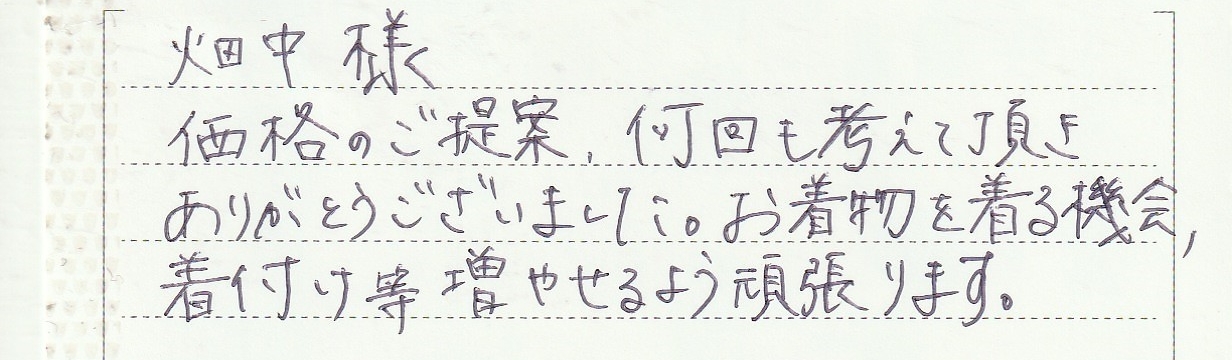 畑中 様
価格のご提案、何回も考えて頂き
ありがとうございました。お着物を着る機会、
着付け等増やせるよう頑張ります。